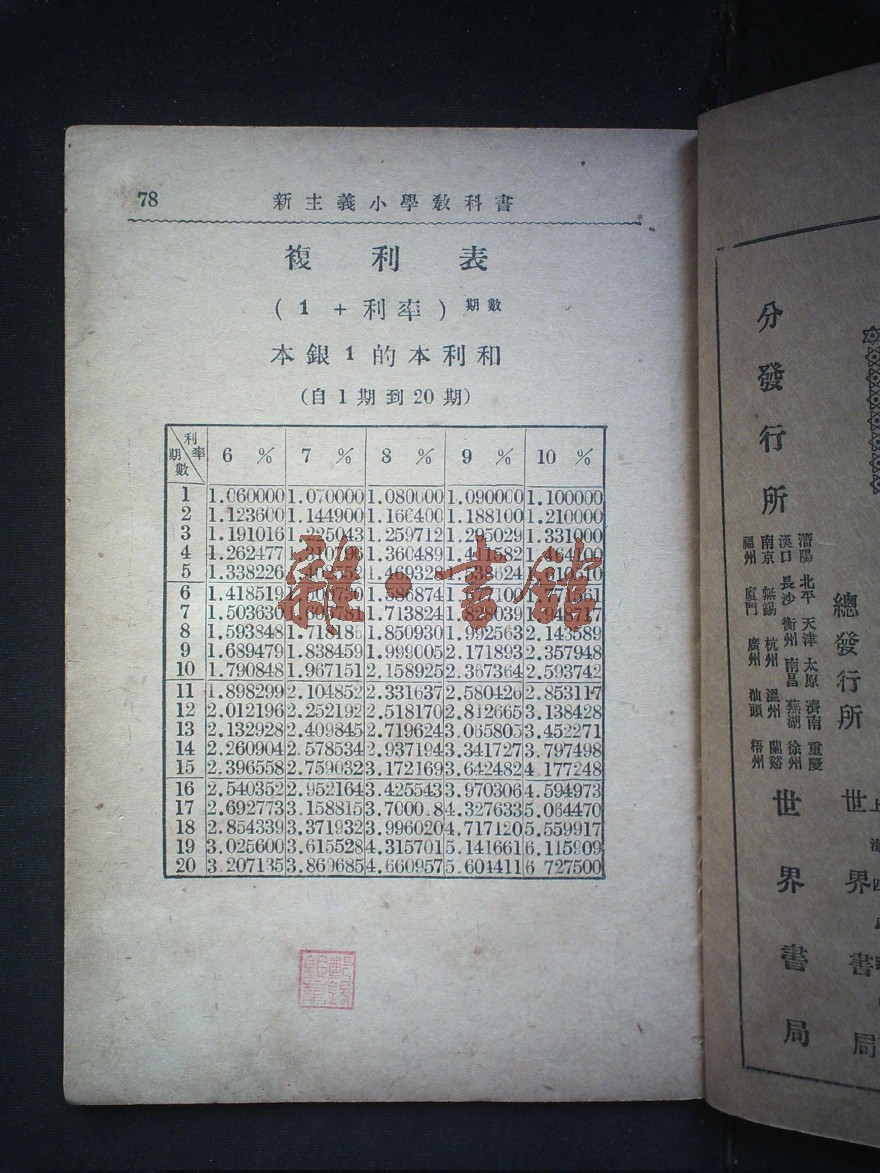 78 新主義小學敎科書
複利表
(1+利率)期數
本銀1的本利和
(自1期到20期)
利率 期數 6% 7% 8% 9% 10%
1 1.060000 1.070000 1.080000 1.090000 1.100000
2 1.123600 1.144900 1.166400 1.188100 1.210000
3 1.191016 1.225043 1.259712 1.295029 1.331000
4 1.262477 1.360489 1.411582 1.464100
5 1.338226 1.469328
6 1.418519
7 1.503630 1.713824 1.828039 1.948717
8 1.593848 1.718186 1.850930 1.992563 2.143589
9 1.689479 1.838459 1.999005 2.171893 2.357948
10 1.790848 1.967151 2.158925 2.367364 2.593742
11 1.898299 2.104852 2.331637 2.580426 2.853117
12 2.012196 2.252192 2.518170 2.812665 3.138428
13 2.132928 2.409845 2.719624 3.065805 3.452271
14 2.260904 2.578534 2.937194 3.341727 3.797498
15 2.396558 2.759032 3.172169 3.642482 4.177248
16 2.540352 2.952164 3.425543 3.970306 4.594973
17 2.692773 3.158815 3.700018 4.327633 5.064470
18 2.854339 3.371932 3.996020 4.717120 5.559917
19 3.025600 3.615528 4.315701 5.141661 6.115909
20 3.207135 3.869685 4.660957 5.604411 6 727500
總發行所
世界書局
分發行所
瀋陽 北平 天津 太原 濟南 重慶
漢口 長沙 衡州 南昌 蕪湖 徐州
南京 無錫 杭州 溫州 蘭谿
福州 廈門 廣州 汕頭 梧州
世界書局